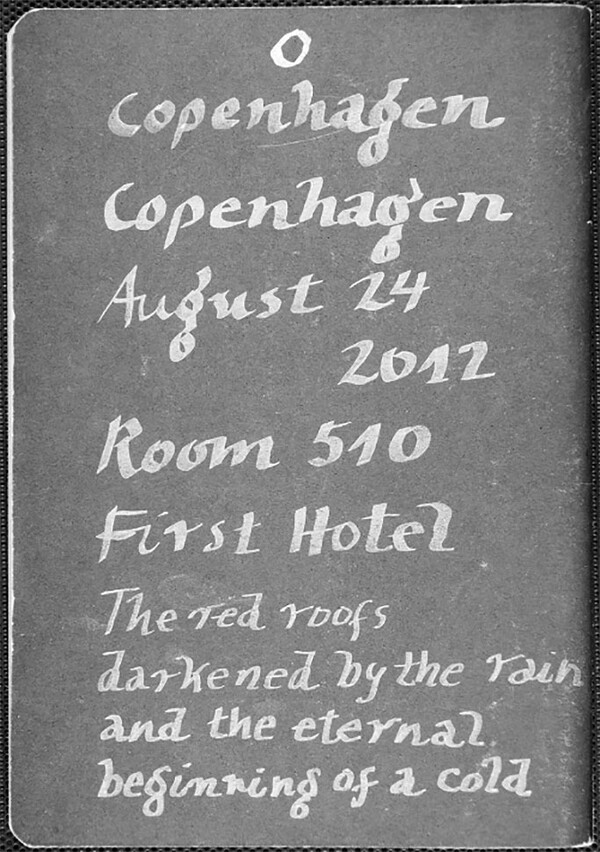 O
Copenhagen
Copenhagen
August 24
2012
Room 510
First Hotel
The red roofs
darkened by the rain
and the eternal
beginning of a cold